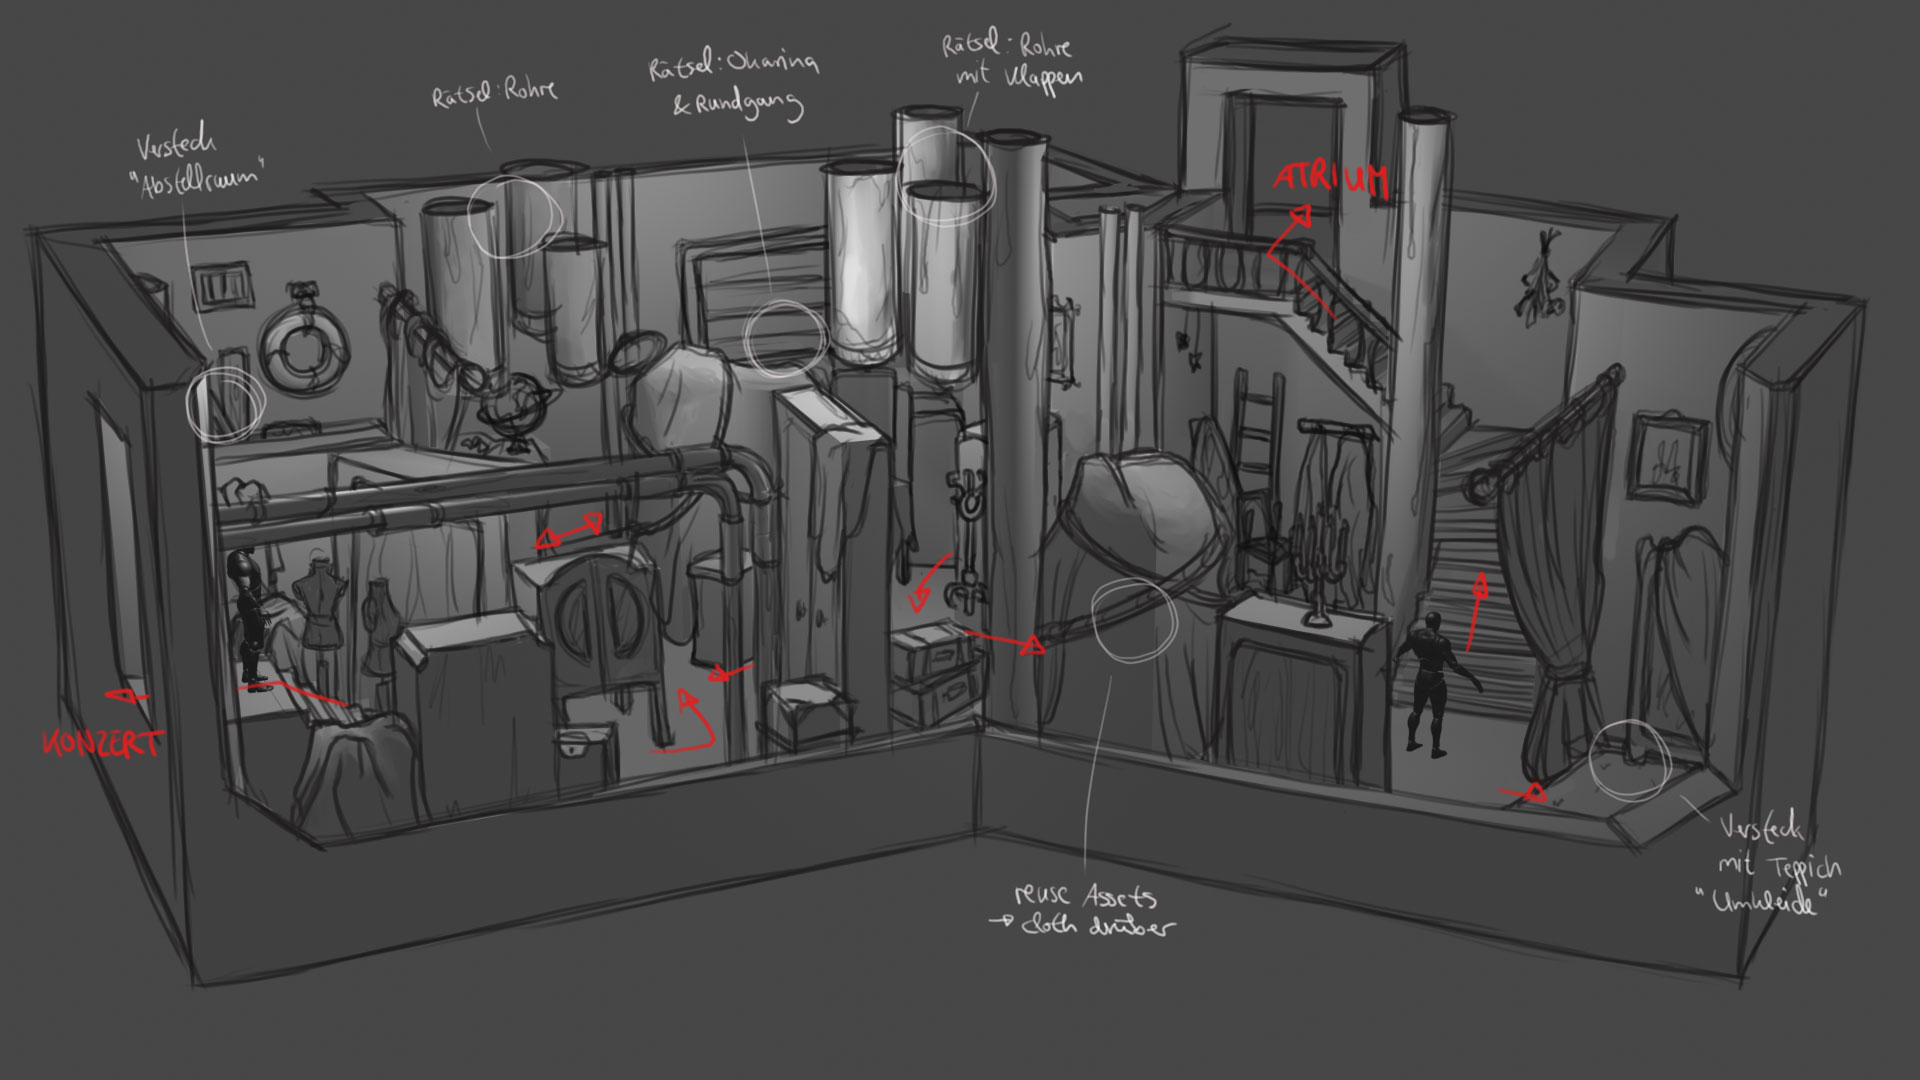 Versteck
"Abstellraum"
Rätsel: Rohre
Rätsel: Okarina
& Rundgang
Rätsel: Rohre
mit Klappen
ATRIUM
KONZERT
reuse Assets
→ cloth drüber
Versteck
mit Teppich
"Umkleide"